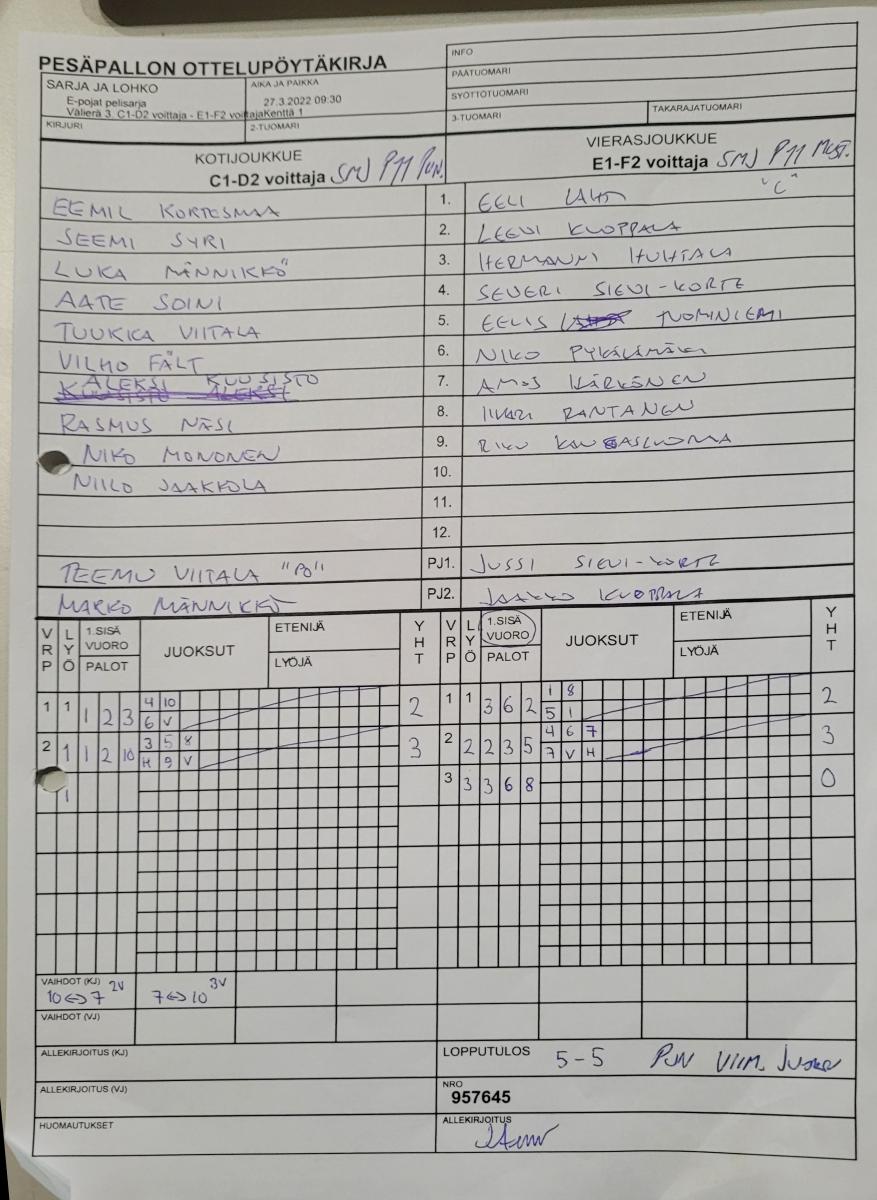 PESÄPALLON OTTELUPÖYTÄKIRJA
INFO
PÄÄTUOMARI
SYÖTTÖTUOMARI
3-TUOMARI TAKARAJATUOMARI
SARJA JA LOHKO
E-pojat pelisarja
Välierä 3. C1-D2 voittaja - E1-F2 voittajaKenttä 1
AIKA JA PAIKKA
27.3.2022 09:30
KIRJURI 2-TUOMARI
KOTIJOUKKUE
C1-D2 voittaja SMJ P11 PUN.
VIERASJOUKKUE
E1-F2 voittaja SMJ P11 MUST.
"C"
EEMIL KORTESMAA 1. EELI LAHTI
SEEMI SYRI 2. LEEVI KUOPPALA
LUKA MÄNNIKKÖ 3. HERMANNI HUHTALA
AATE SOINI 4. SEVERI SIEVI-KORTE
TUUKKA VIITALA 5. EELIS TUOMINIEMI
VILHO FÄLT 6. NIKO PYKÄLÄMÄKI
ALEKSI KUUSISTO 7. AMOS KÄRKÖNEN
KUUSISTO ALEKSI
RASMUS NÄSI 8. IIVARI RANTANEN
NIKO MONONEN 9. RIKU KANGASLUOMA
NIILO JAAKKOLA 10.
11.
12.
TEEMU VIITALA "PO" PJ1. JUSSI SIEVI-KORTE
MARKO MÄNNIKKÖ PJ2. JAAKKO KUOPPALA
VRP LYÖ 1.SISÄ VUORO PALOT JUOKSUT ETENIJÄ LYÖJÄ YHT VRP LYÖ 1.SISÄ VUORO PALOT JUOKSUT ETENIJÄ LYÖJÄ YHT
1 1 1 2 3 4 10 2 1 1 3 6 2 1 8 2
6 V 5 1
2 1 1 2 10 3 5 8 3 2 2 2 3 5 4 6 7 3
H 9 V 7 V H
1 3 3 3 6 8 0
VAIHDOT (KJ)
10<->7 2V 7<->10 3V
VAIHDOT (VJ)
ALLEKIRJOITUS (KJ)
LOPPUTULOS 5-5 PUN VIIM. JUOKSU
ALLEKIRJOITUS (VJ)
NRO
957645
HUOMAUTUKSET
ALLEKIRJOITUS